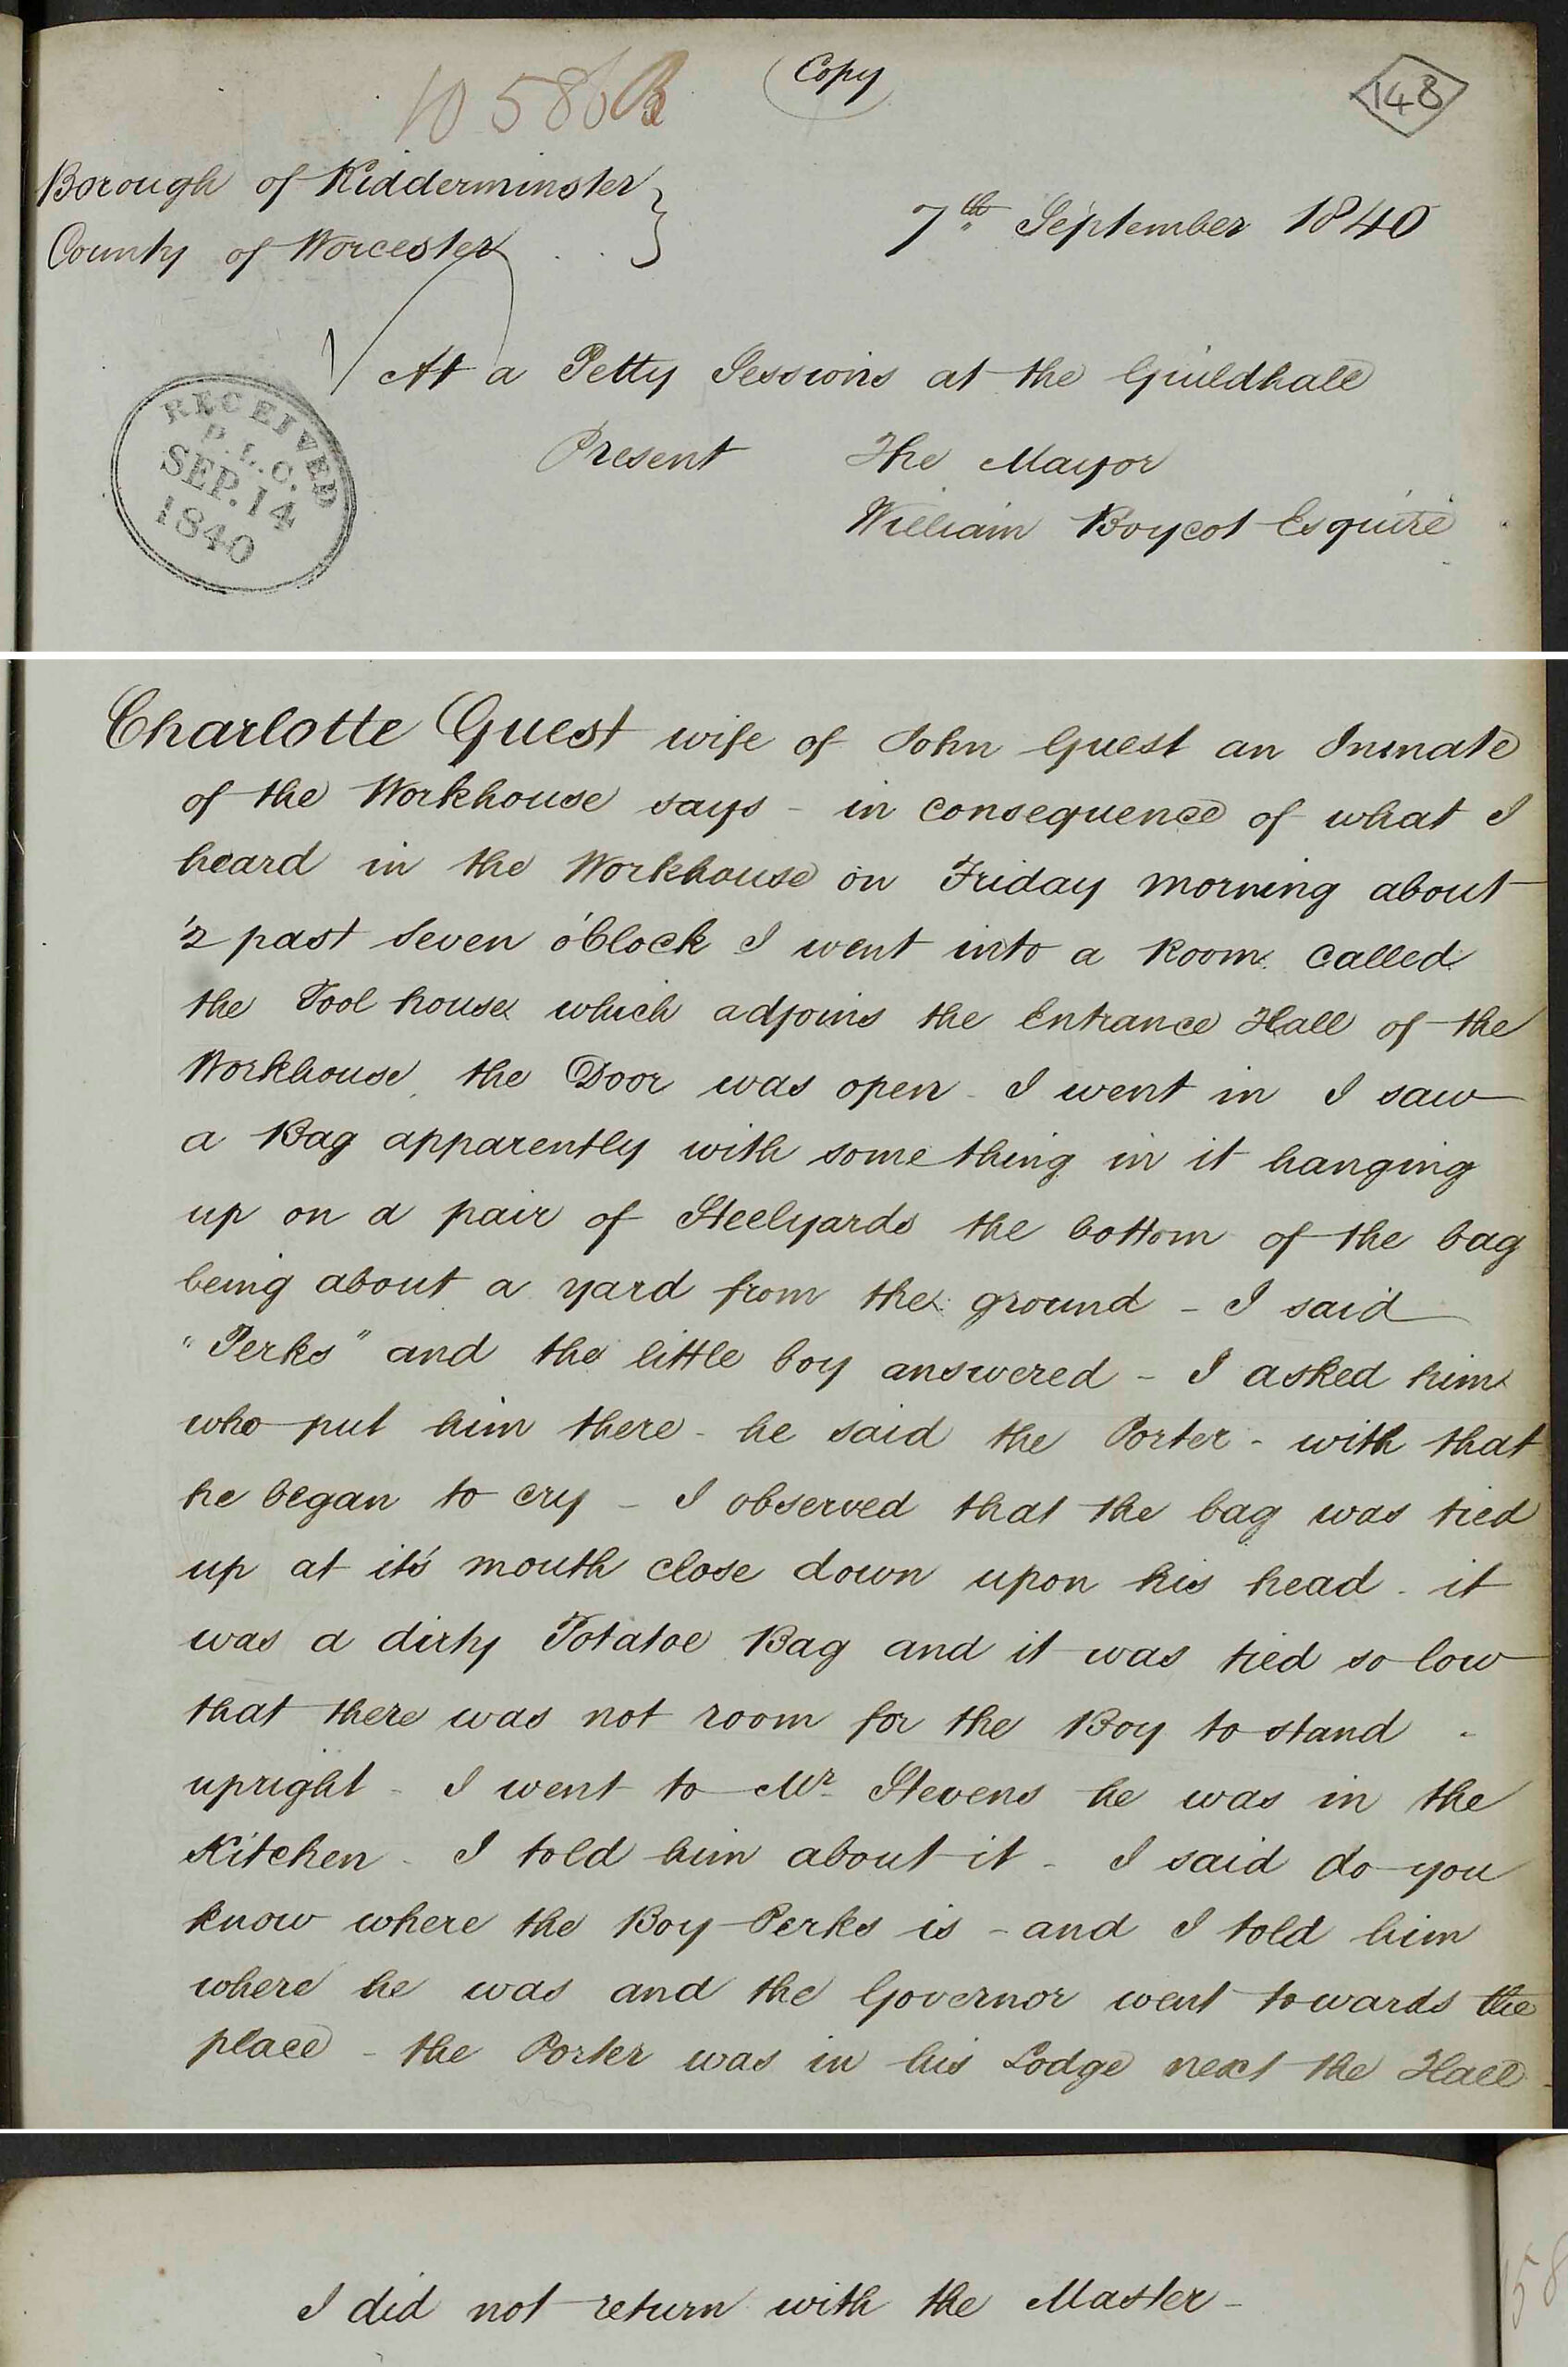 10586B
(Copy)
148
Borough of Kidderminster }
County of Worcester . . }
7th September 1840
At a Petty Sessions at the Guildhall
RECEIVED
P.L.C.
SEP. 14
1840
Present The Mayor
William Boycot Esquire
Charlotte Guest wife of John Guest an Inmate
of the Workhouse says - in consequence of what I
heard in the Workhouse on Friday morning about
½ past seven o'Clock I went into a Room called
the Tool house which adjoins the Entrance Hall of the
Workhouse, the Door was open - I went in I saw
a Bag apparently with some thing in it hanging
up on a pair of Steelyards the bottom of the bag
being about a yard from the ground - I said
"Perks" and the little boy answered - I asked him
who put him there - he said the Porter - with that
he began to cry - I observed that the bag was tied
up at it's mouth close down upon his head - it
was a dirty Potatoe Bag and it was tied so low
that there was not room for the Boy to stand -
upright - I went to Mr Stevens he was in the
Kitchen - I told him about it - I said do you
know where the Boy Perks is - and I told him
where he was and the Governor went towards the
place - the Porter was in his Lodge next the Hall -
I did not return with the Master -
58